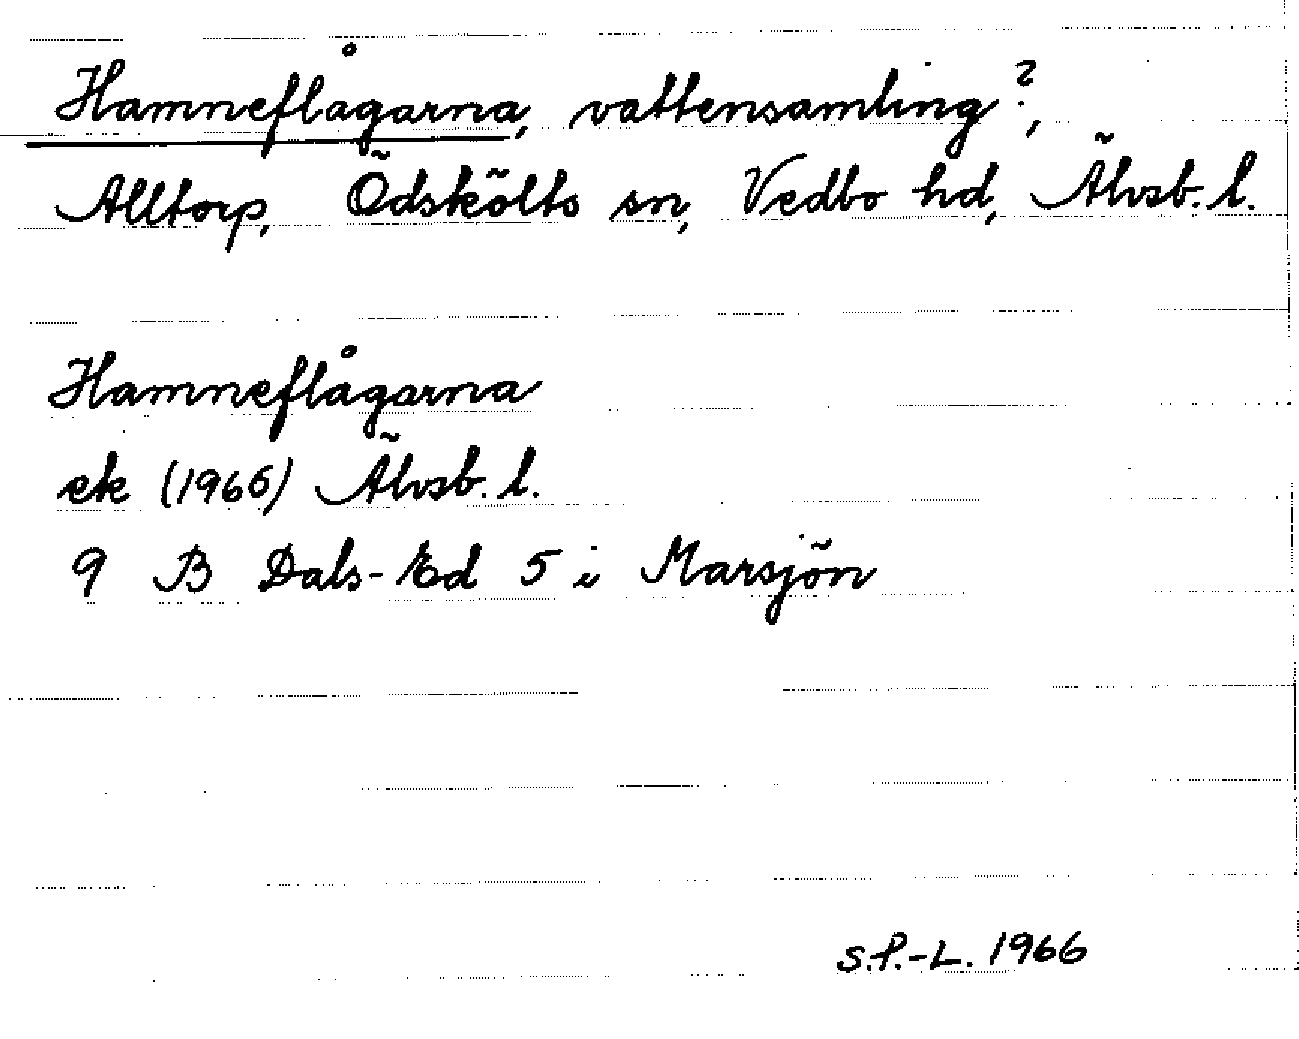 Hamneflågarna, vattensamling?,
Alltorp, Ödskölts sn, Vedbo hd, Älvsb. l.
Hamneflågarna
ek (1966) Älvsb. l.
9 B Dals-Ed 5 i Marsjön
S.P.-L. 1966